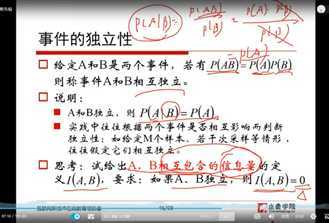 P(A|B)= P(AB)/P(B) = P(A)·P(B)/P(B)
= P(A)
事件的独立性
给定A和B是两个事件，若有P(AB)=P(A)P(B)
则称事件A和B相互独立。
说明：
A和B独立，则P(A|B)=P(A)
实践中往往根据两个事件是否相互影响而判断
独立性：如给定M个样本、若干次采样等情形，
往往假定它们相互独立。
思考：试给出A、B相互包含的信息量的定
义I(A,B)，要求：如果A、B独立，则I(A,B)=0